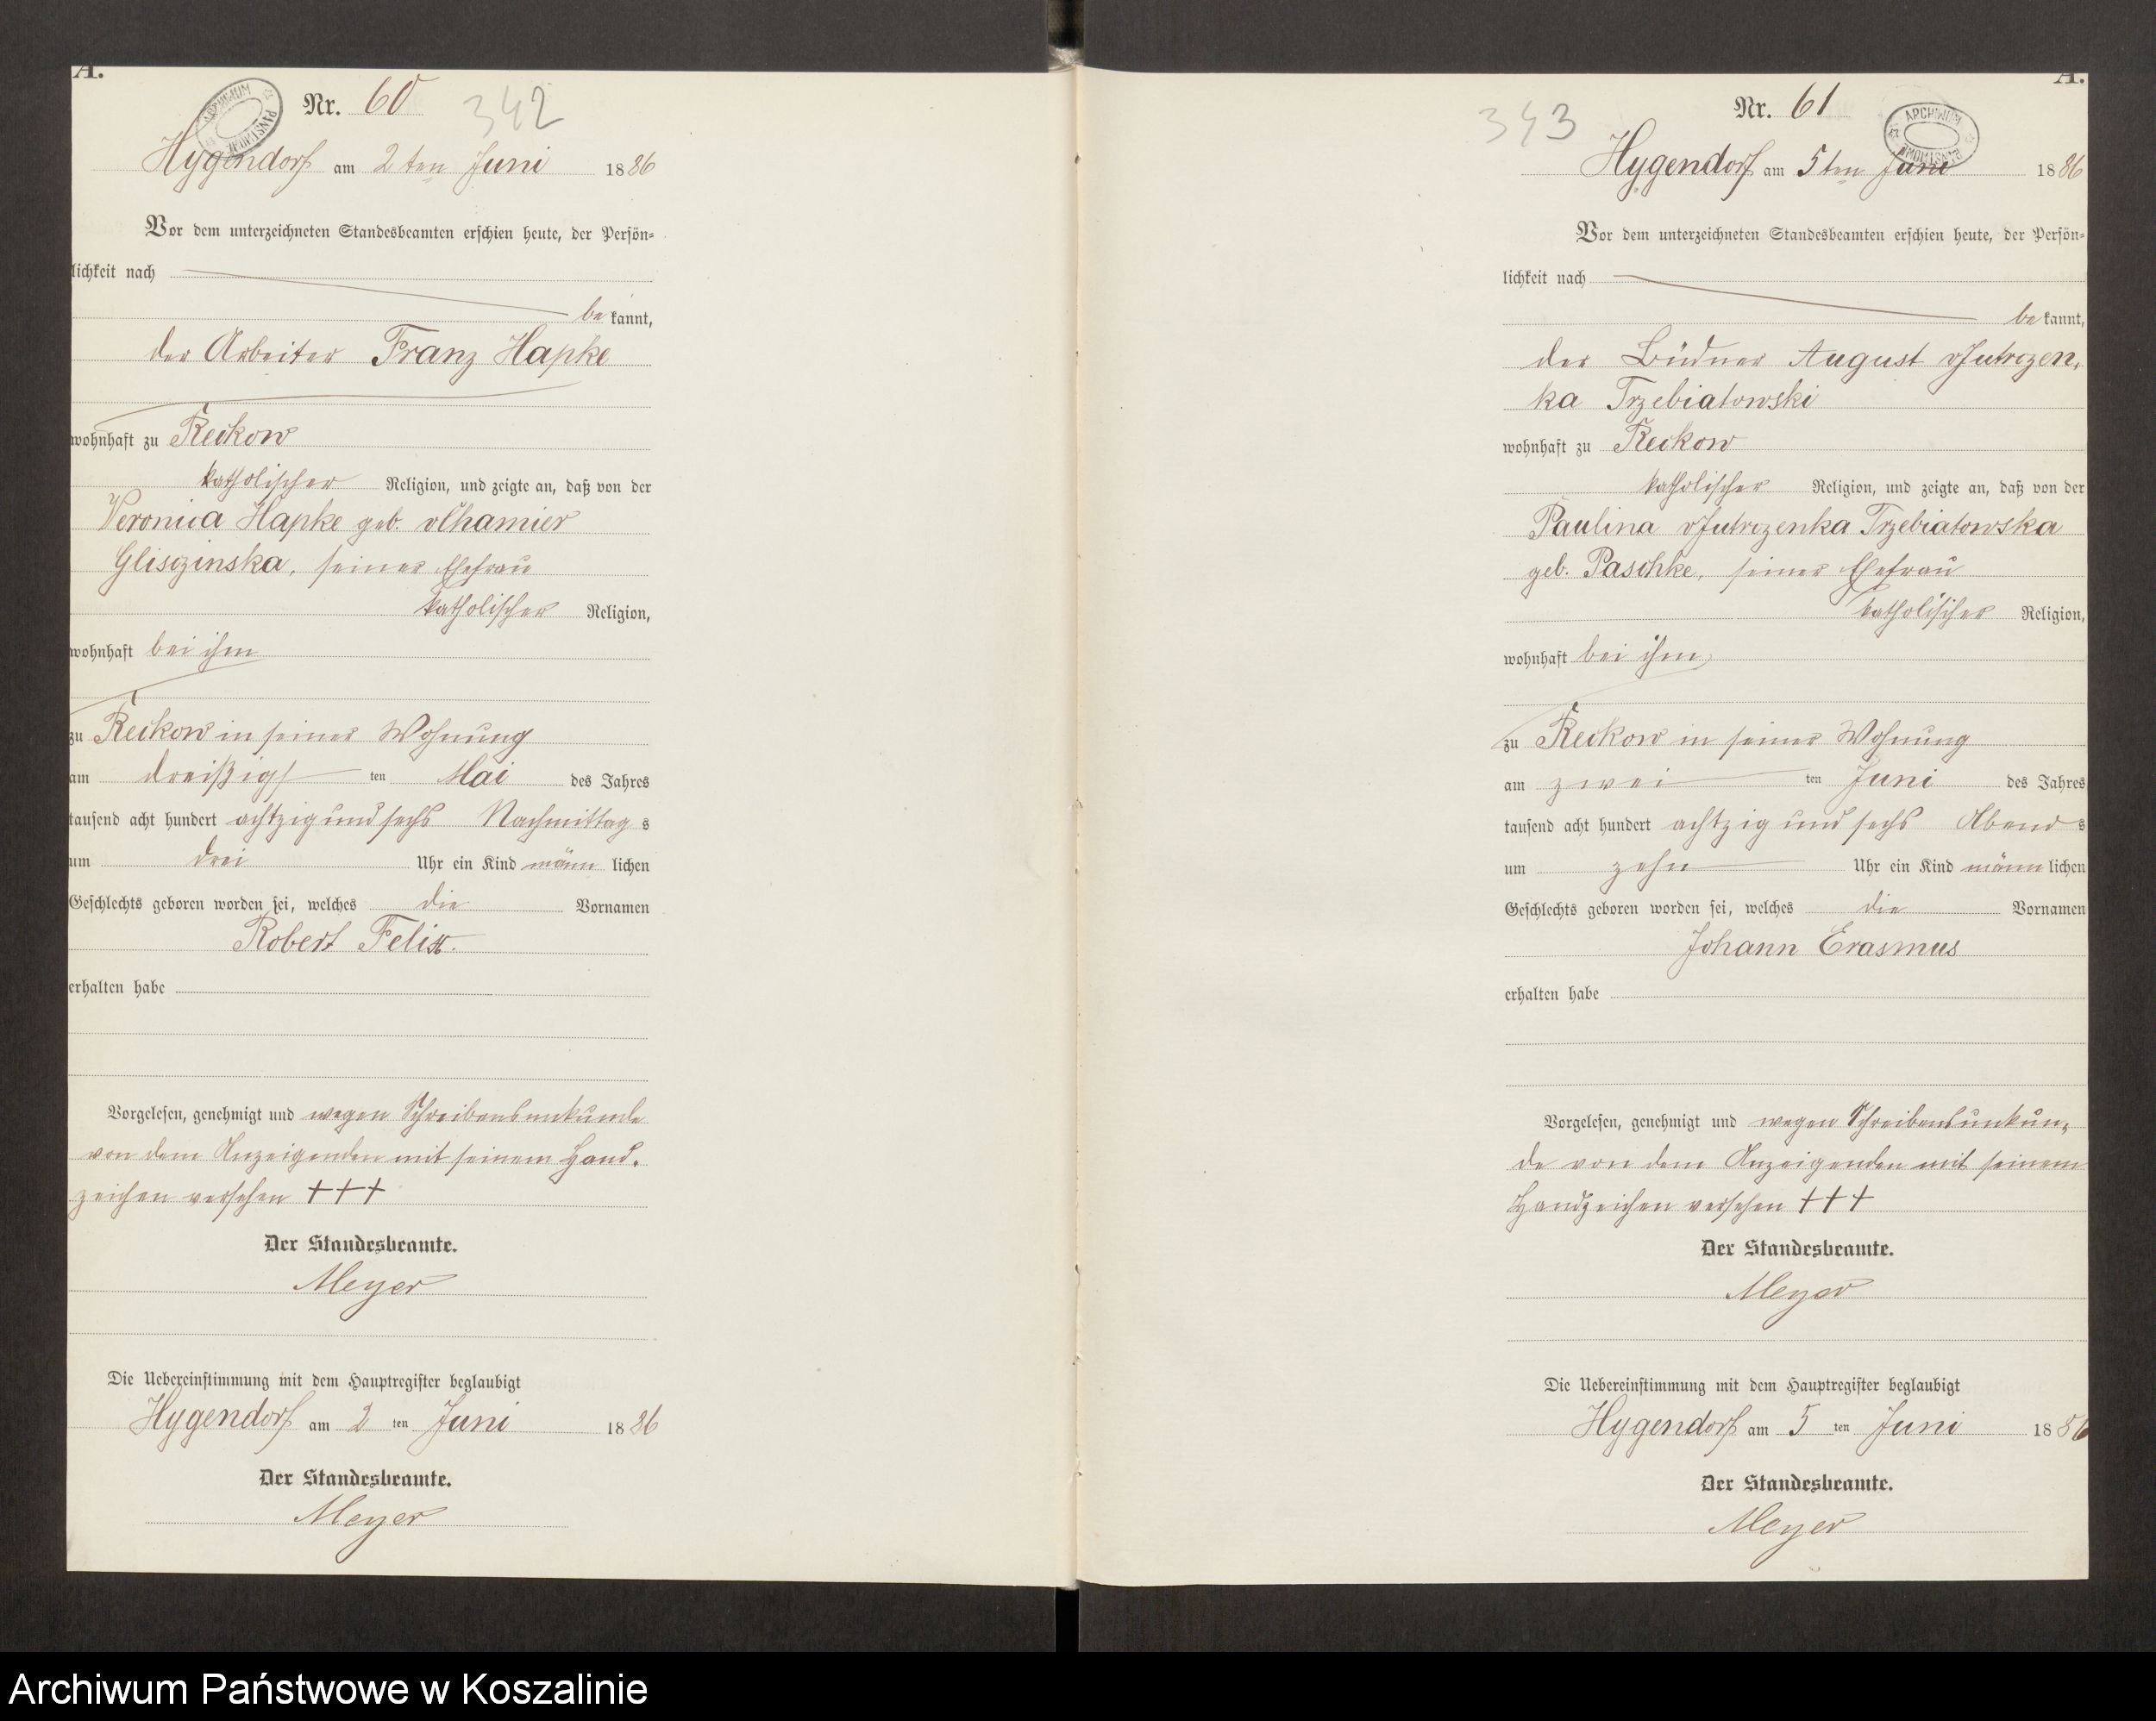 A.
ARCHIWUM PAŃSTWOWE
Nr. 60
342
Hygendorf am 2ten Juni 1886
Vor dem unterzeichneten Standesbeamten erschien heute, der Persön=
lichkeit nach
be kannt,
der Arbeiter Franz Hapke
wohnhaft zu Reckow
katholischer Religion, und zeigte an, daß von der
Veronica Hapke geb. v Chamier
Gliszinska, seiner Ehefrau
katholischer Religion,
wohnhaft bei ihm
zu Reckow in seiner Wohnung
am dreißigs ten Mai des Jahres
tausend acht hundert achtzig und sechs Nachmittag s
um drei Uhr ein Kind männ lichen
Geschlechts geboren worden sei, welches die Vornamen
Robert Felix.
erhalten habe
Vorgelesen, genehmigt und wegen Schreibensunkunde
von dem Anzeigenden mit seinem Hand.
zeichen versehen +++
Der Standesbeamte.
Meyer
Die Uebereinstimmung mit dem Hauptregister beglaubigt
Hygendorf am 2 ten Juni 1886
Der Standesbeamte.
Meyer
A.
ARCHIWUM PAŃSTWOWE
343
Nr. 61
Hygendorf am 5ten Juni 1886
Vor dem unterzeichneten Standesbeamten erschien heute, der Persön=
lichkeit nach
be kannt,
der Büdner August v Jutrczen,
ka Trzebiatowski
wohnhaft zu Reckow
katholischer Religion, und zeigte an, daß von der
Paulina v Jutrczenka Trzebiatowska
geb. Paschke, seiner Ehefrau
katholischer Religion,
wohnhaft bei ihm
zu Reckow in seiner Wohnung
am zwei ten Juni des Jahres
tausend acht hundert achtzig und sechs Abend s
um zehn Uhr ein Kind männ lichen
Geschlechts geboren worden sei, welches die Vornamen
Johann Erasmus
erhalten habe
Vorgelesen, genehmigt und wegen Schreibensunkun,
de von dem Anzeigenden mit seinem
Handzeichen versehen +++
Der Standesbeamte.
Meyer
Die Uebereinstimmung mit dem Hauptregister beglaubigt
Hygendorf am 5 ten Juni 1886
Der Standesbeamte.
Meyer
Archiwum Państwowe w Koszalinie